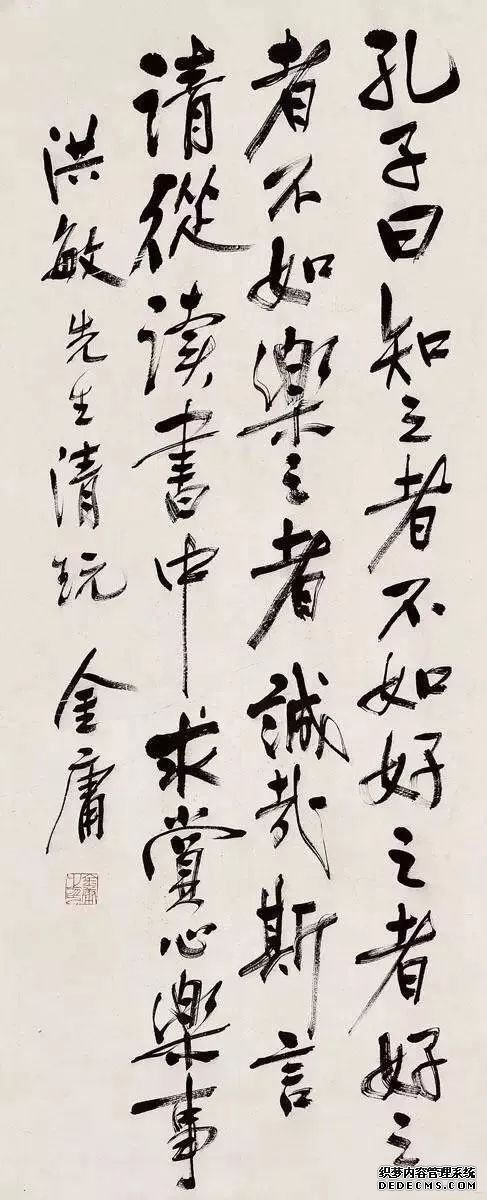 孔子曰知之者不如好之者好之
者不如樂之者誠哉斯言
请從读書中求赏心樂事
洪敏先生清玩
金庸
织梦内容管理系统
DEDECMS.COM